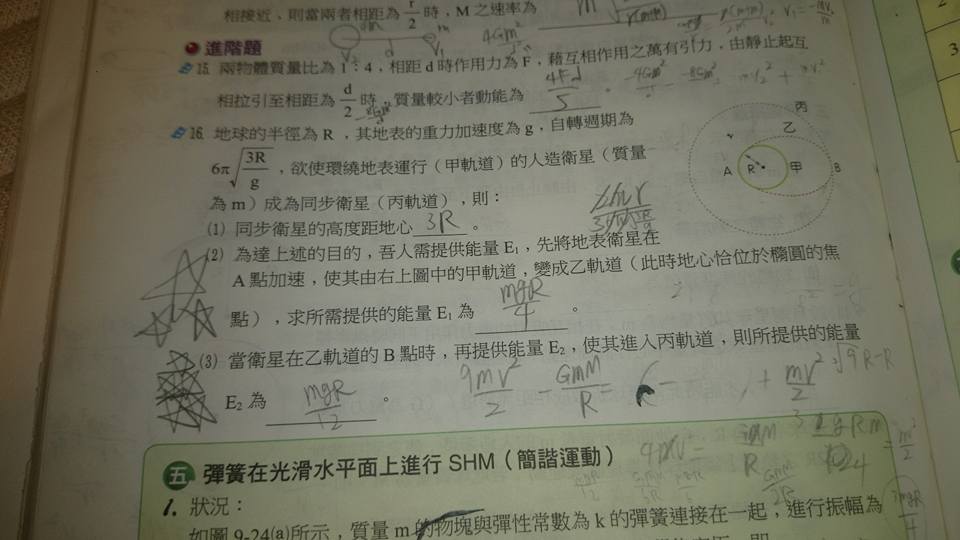 相接近，則當兩者相距為 r/2 時，M 之速率為
進階題
15. 兩物體質量比為 1：4，相距 d 時作用力為 F，藉互相作用之萬有引力，由靜止起互
相拉引至相距為 d/2 時，質量較小者動能為 4Fd/5 。
16. 地球的半徑為 R，其地表的重力加速度為 g，自轉週期為
6π√(3R/g)，欲使環繞地表運行（甲軌道）的人造衛星（質量
為 m）成為同步衛星（丙軌道），則：
丙
乙
A R 甲 B
(1) 同步衛星的高度距地心 3R 。
(2) 為達上述的目的，吾人需提供能量 E₁，先將地表衛星在
A 點加速，使其由右上圖中的甲軌道，變成乙軌道（此時地心恰位於橢圓的焦
點），求所需提供的能量 E₁ 為 mgR/4 。
(3) 當衛星在乙軌道的 B 點時，再提供能量 E₂，使其進入丙軌道，則所提供的能量
E₂ 為 mgR/12 。
9mv²/2 - GmM/R =
+ mv²/2
五 彈簧在光滑水平面上進行 SHM（簡諧運動）
1. 狀況：
如圖 9-24(a)所示，質量 m 的物塊與彈性常數為 k 的彈簧連接在一起，進行振幅為